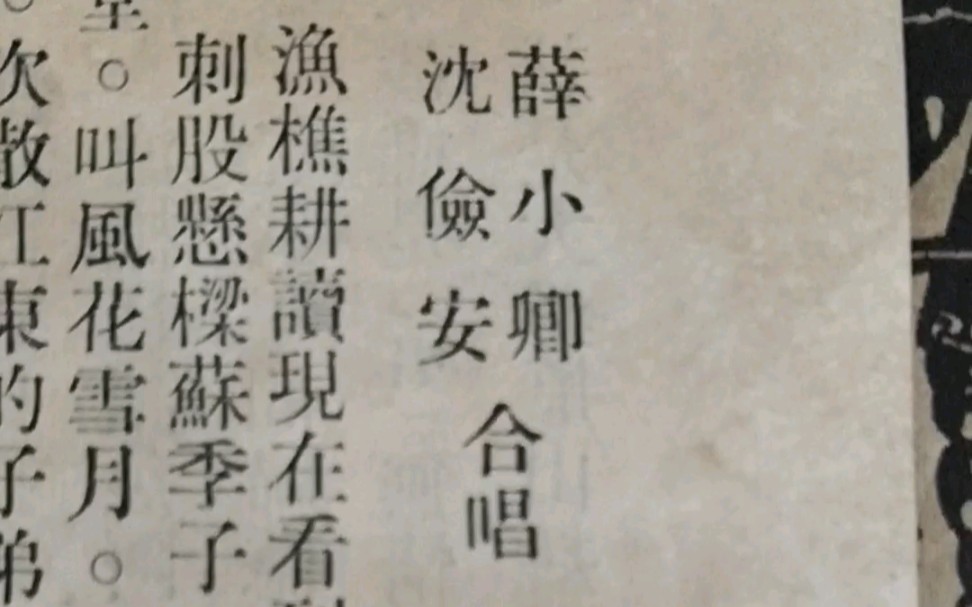 薛小卿
沈儉安
合唱
漁樵耕讀現在看
刺股懸樑蘇季子
。叫風花雪月。
次散江東的子弟